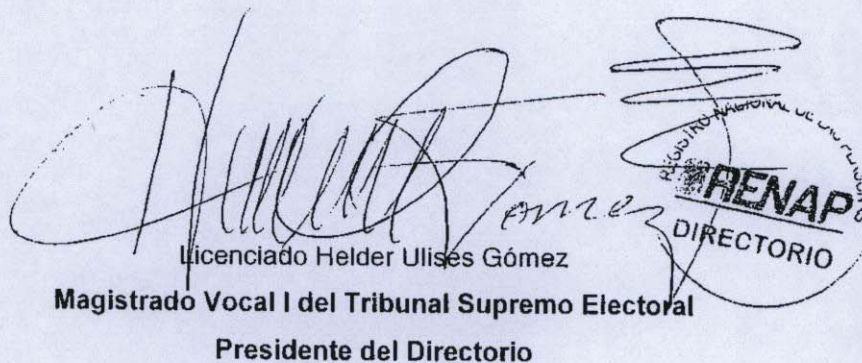 REGISTRO NACIONAL DE LAS
RENAP
DIRECTORIO
Licenciado Helder Ulises Gómez
Magistrado Vocal I del Tribunal Supremo Electoral
Presidente del Directorio